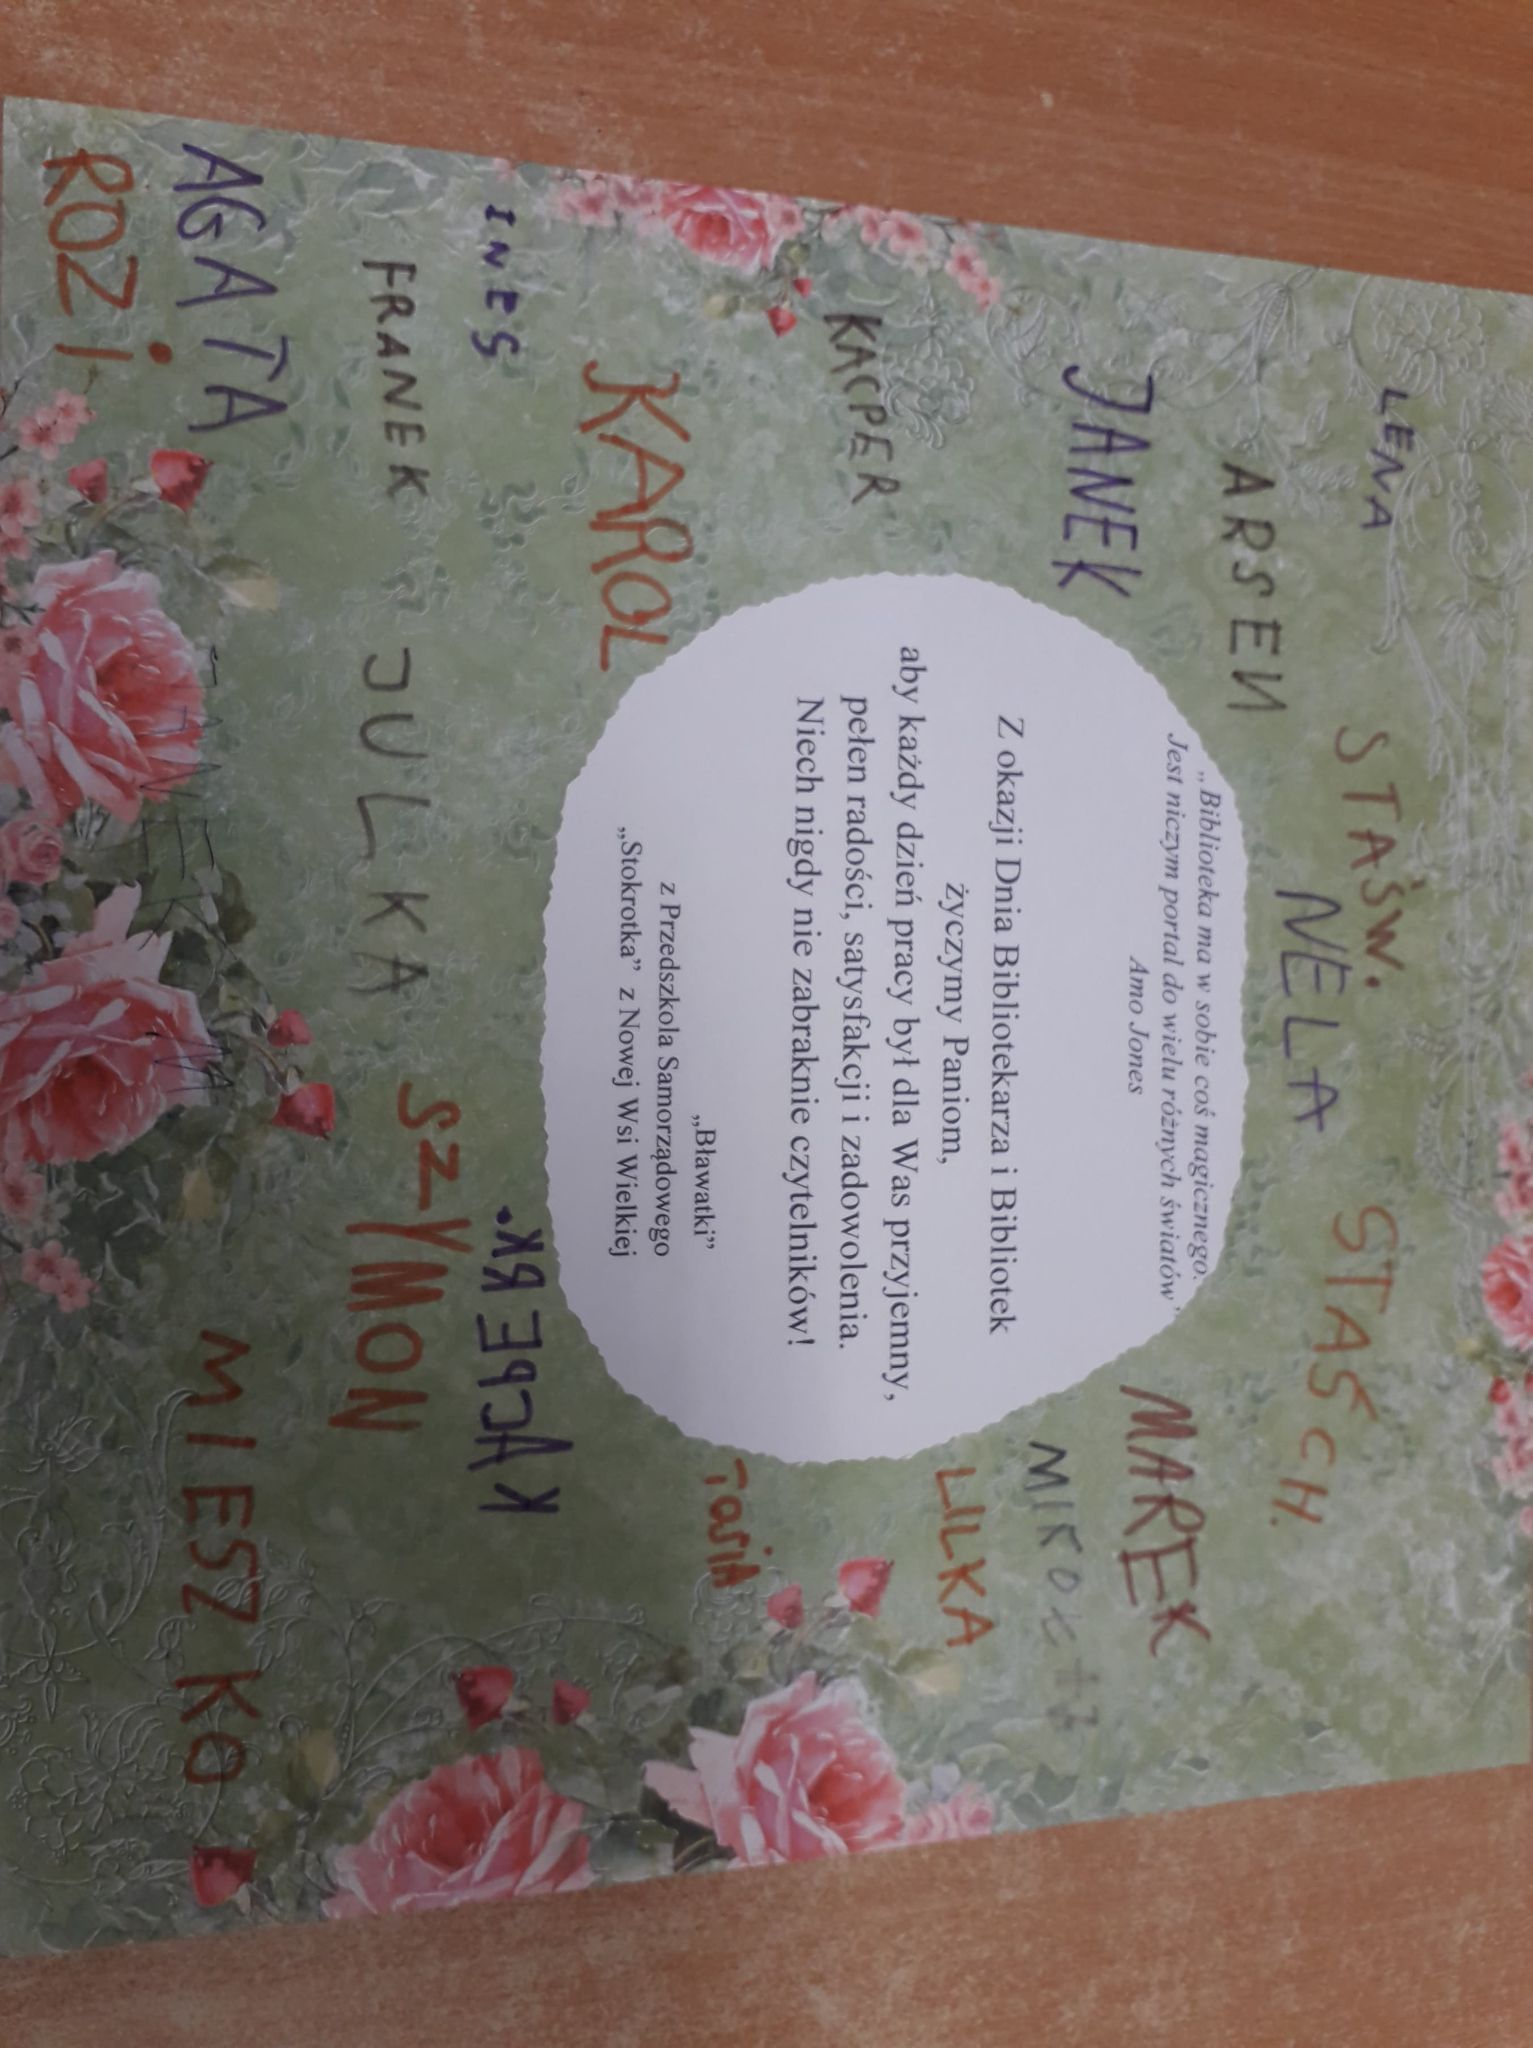 LENA
STAŚW.
STAŚ CH.
ARSEN
NELA
MAREK
JANEK
„Biblioteka ma w sobie coś magicznego.
Jest niczym portal do wielu różnych światów”
Amo Jones
Z okazji Dnia Bibliotekarza i Bibliotek
życzymy Paniom,
aby każdy dzień pracy był dla Was przyjemny,
pełen radości, satysfakcji i zadowolenia.
Niech nigdy nie zabraknie czytelników!
„Bławatki”
z Przedszkola Samorządowego
„Stokrotka” z Nowej Wsi Wielkiej
LILKA
KACPER
TOSIA
KAROL
INES
KACPER K.
FRANEK
JULKA
SZYMON
AGATA
MIESZKO
ROZI